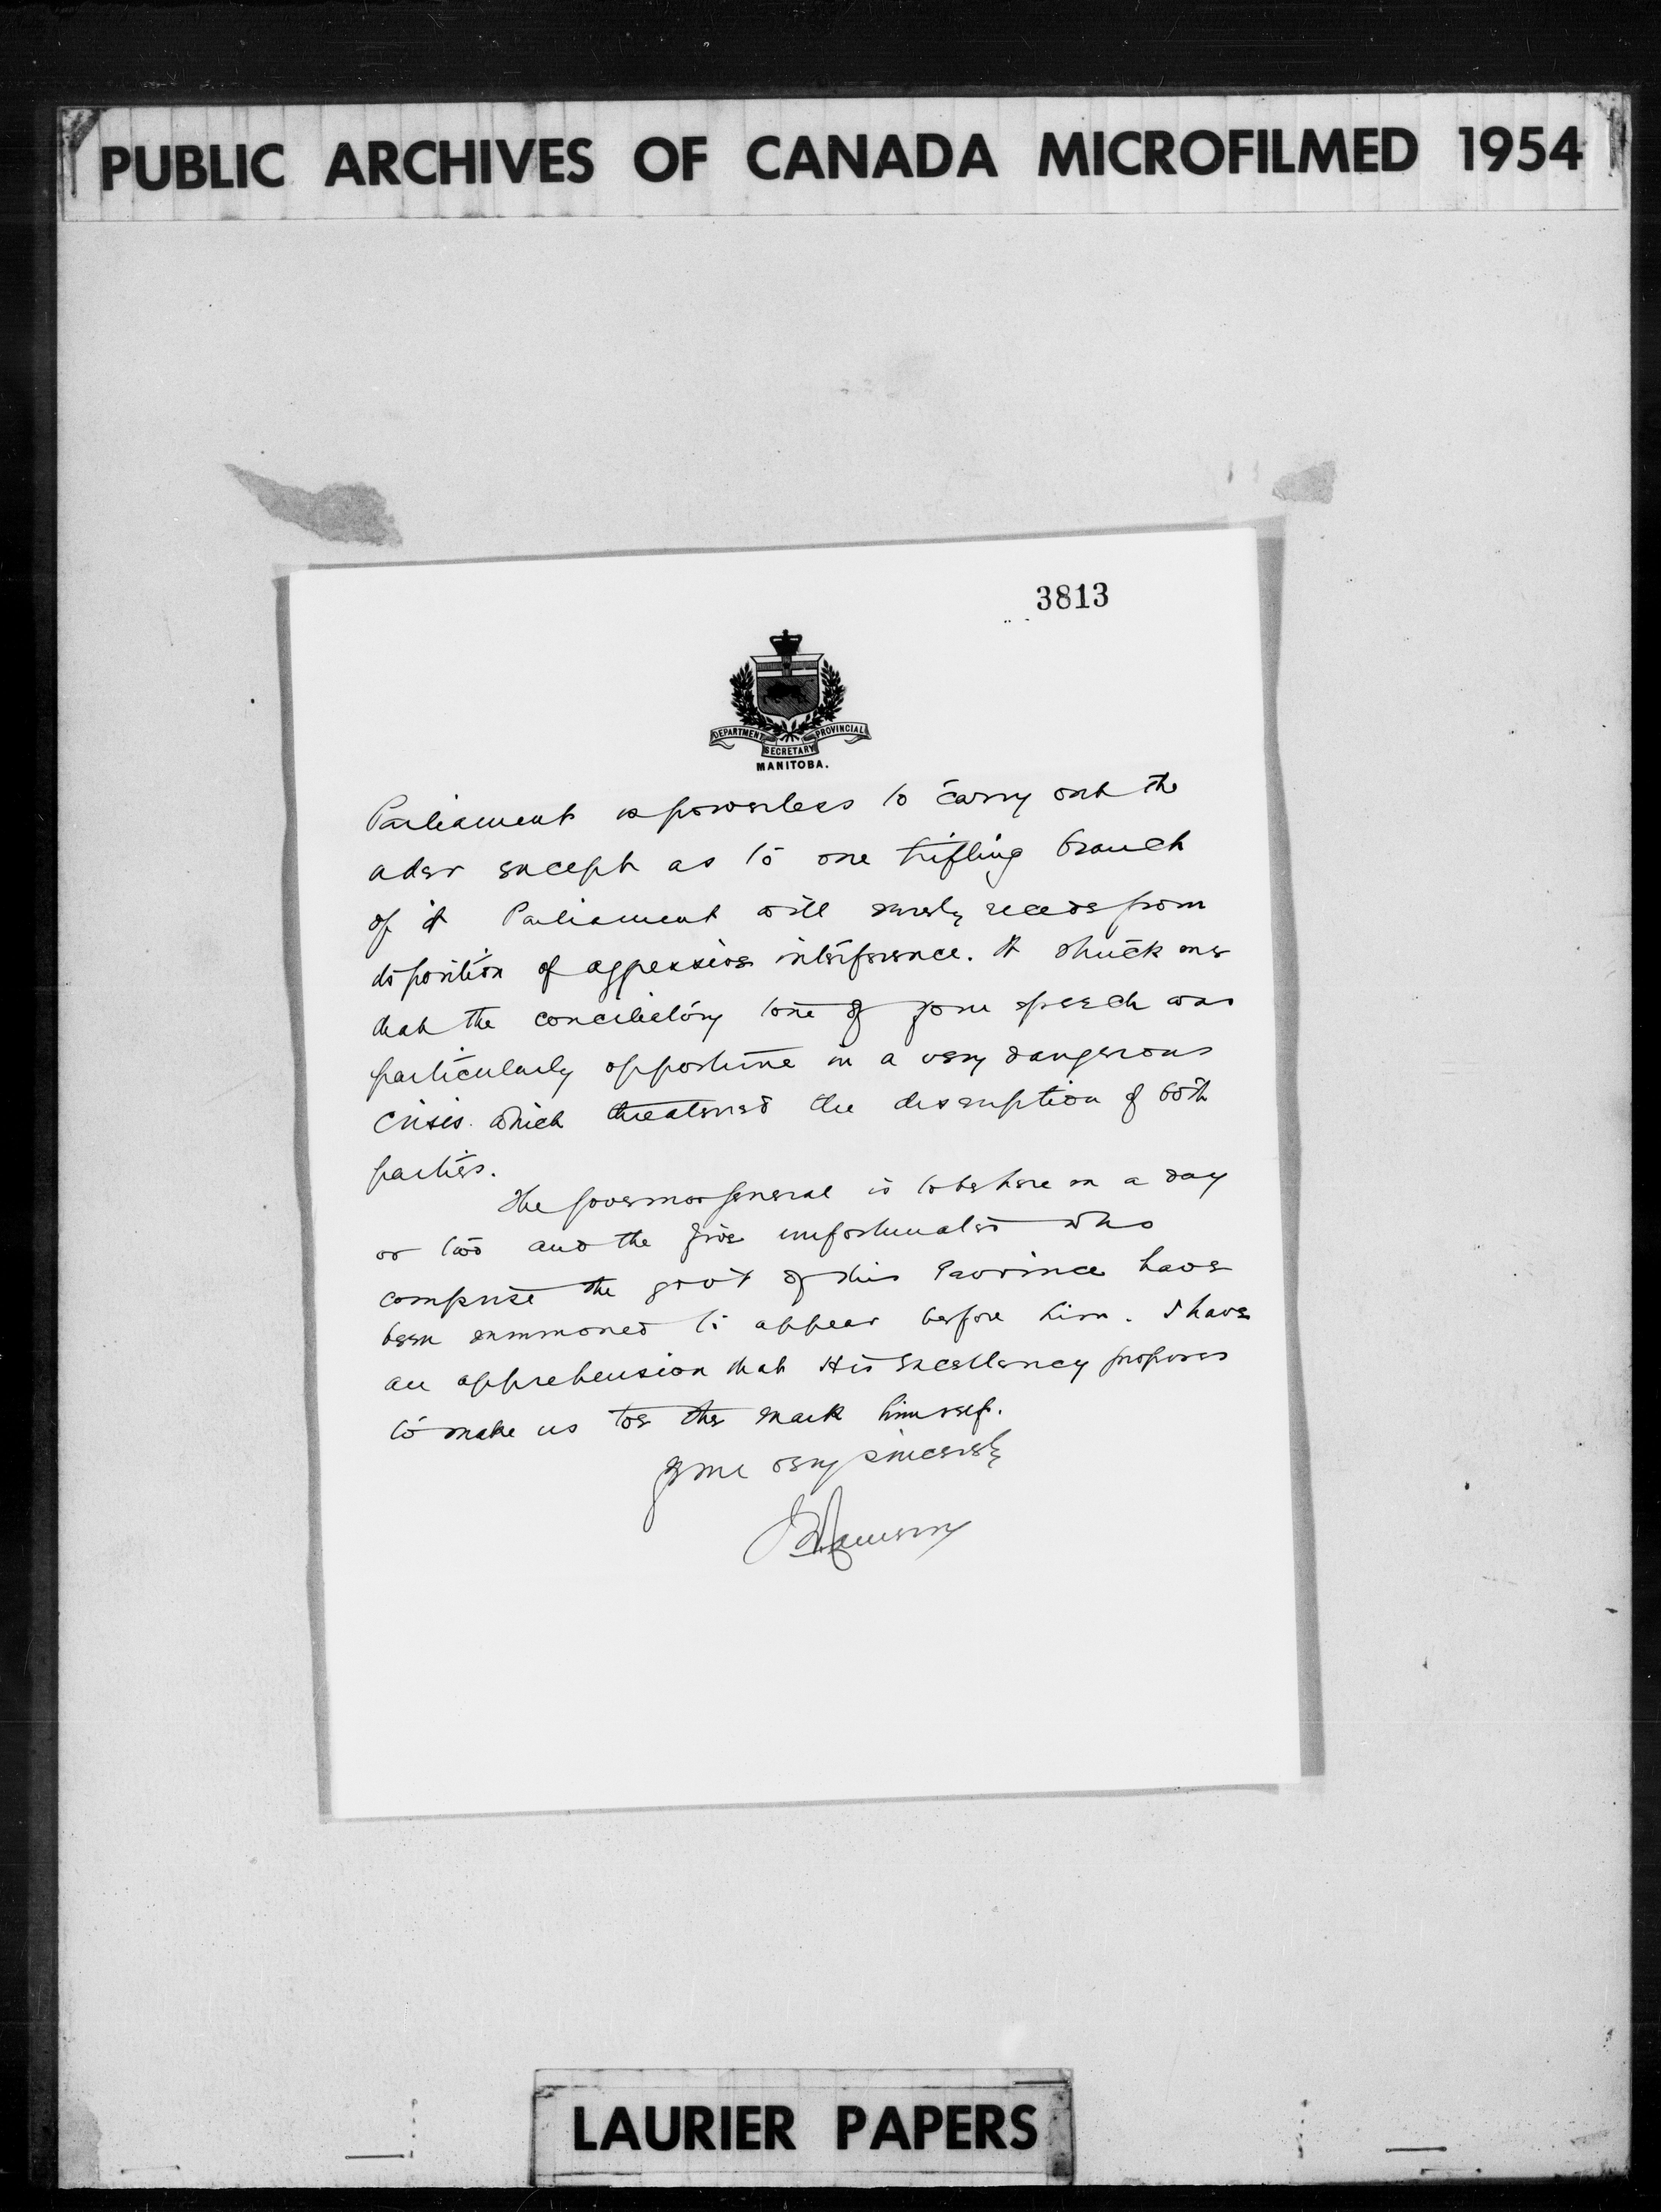 PUBLIC ARCHIVES OF CANADA MICROFILMED 1954
3813
DEPARTMENT PROVINCIAL
SECRETARY
MANITOBA.
Parliament is powerless to carry out the
order except as to one trifling branch
of it Parliament will surely recede from
its position of aggressive interference. It struck me
that the conciliatory tone of your speech was
particularly opportune in a very dangerous
crisis which threatened the disruption of both
parties.
The Governor General is to be here in a day
or two and the five unfortunates who
comprise the govt of this Province have
been summoned to appear before him. I have
an apprehension that His Excellency proposes
to make us toe the mark himself.
Yours very sincerely
LAURIER PAPERS